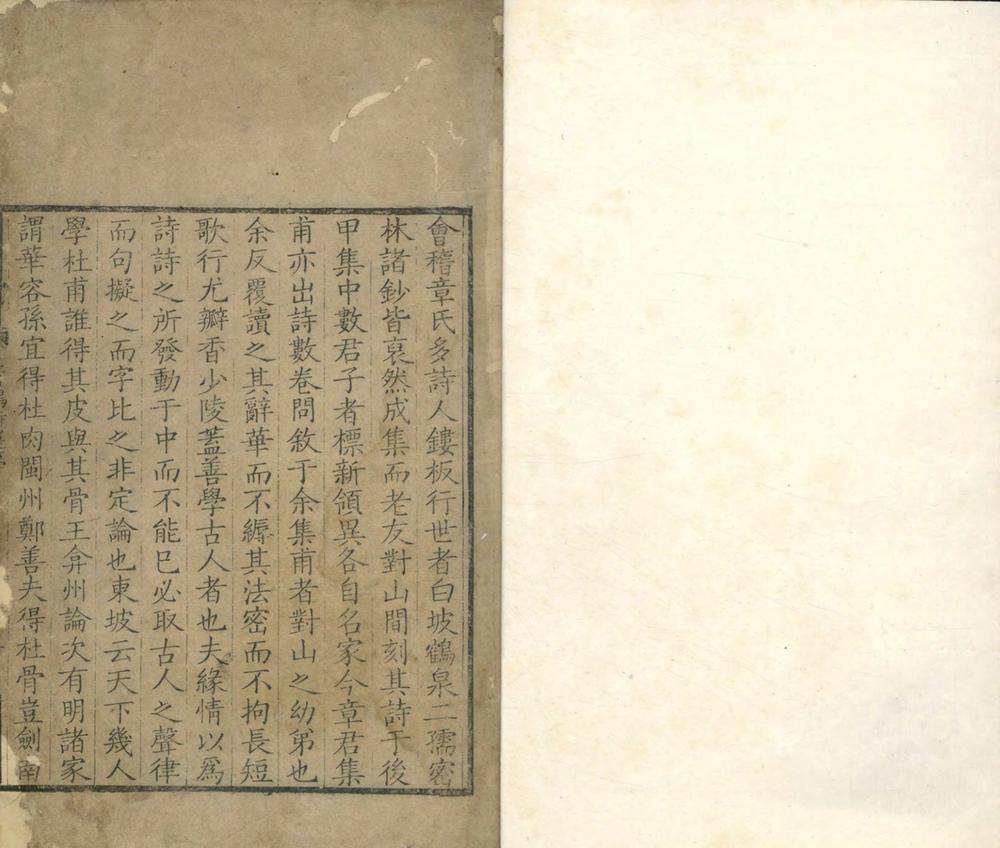 會稽章氏多詩人鏤板行世者白坡鶴泉二孺密
林諸鈔皆裒然成集而老友對山間刻其詩于後
甲集中數君子者標新領異各自名家今章君集
甫亦出詩數卷問敘于余集甫者對山之幼弟也
余反覆讀之其辭華而不縟其法密而不拘長短
歌行尤瓣香少陵蓋善學古人者也夫緣情以爲
詩詩之所發動于中而不能已必取古人之聲律
而句擬之而字比之非定論也東坡云天下幾人
學杜甫誰得其皮與其骨王弇州論次有明諸家
謂華容孫宜得杜肉閩州鄭善夫得杜骨豈劍南